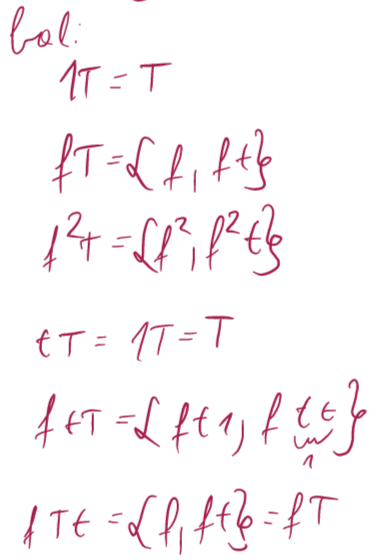 bal:
1T = T
fT = {f, ft}
f²T = {f², f²t}
tT = 1T = T
ftT = {ft1, ftt}
1
fTt = {f, ft} = fT